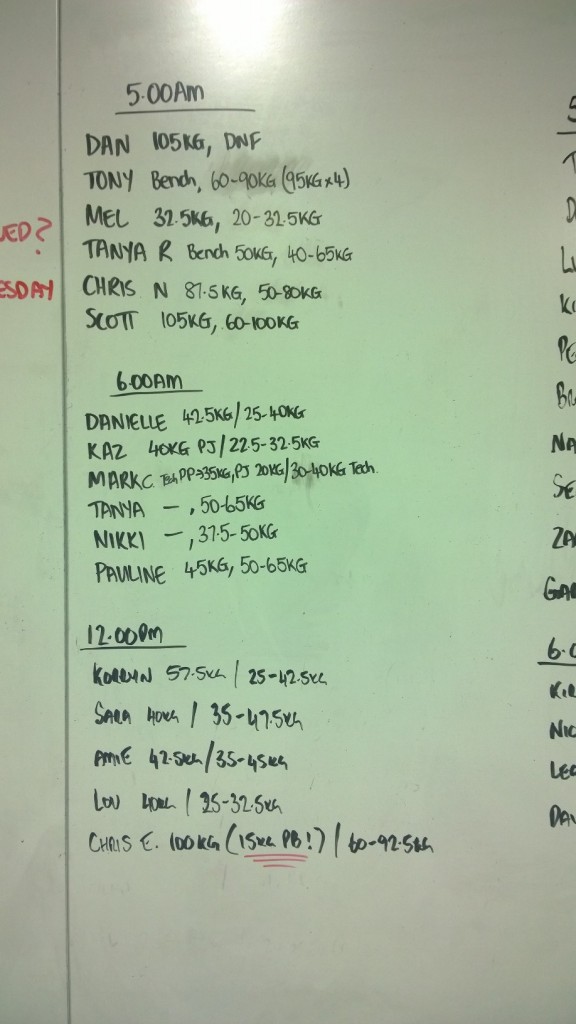 5.00AM
DAN 105KG, DNF
TONY Bench, 60-90KG (95KGx4)
MEL 32.5KG, 20-32.5KG
TANYA R Bench 50KG, 40-65KG
CHRIS N 87.5KG, 50-80KG
SCOTT 105KG, 60-100KG
6.00AM
DANIELLE 42.5KG/25-40KG
KAZ 40KG PJ/22.5-32.5KG
MARK C. Tech PP 35KG, PJ 20KG/30-40KG Tech.
TANYA —, 50-65KG
NIKKI —, 37.5-50KG
PAULINE 45KG, 50-65KG
12.00PM
KORRYN 57.5KG | 25-42.5KG
SARA 40KG / 35-47.5KG
AMIE 42.5KG/35-45KG
LOU 40KG | 25-32.5KG
CHRIS E. 100KG (15KG PB!) | 60-92.5KG
?
ESDAY
NA
SE
ZA
GAR
6.0
KIR
NIC
LEE
DAV